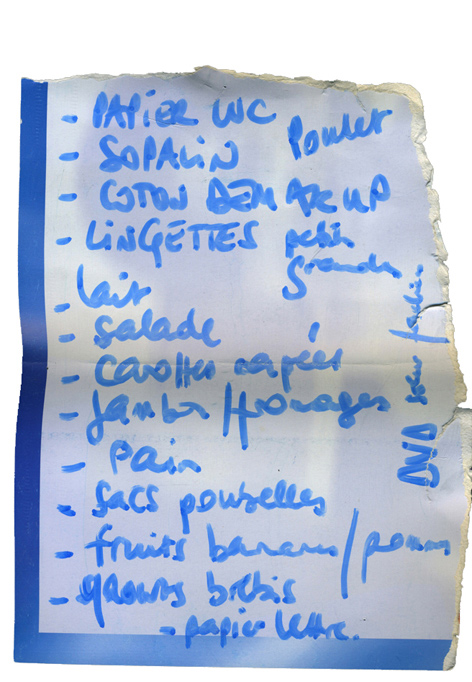 - PAPIER WC
Poulet
- SOPALIN
- COTON DEMAKEUP
- LINGETTES petits
grandes
- lait
- salade
- carottes rapées
- jambon / fromages
- Pain
- sacs poubelles
- fruits bananes / pommes
- yaourts brebis
- papier lettre.
DVD